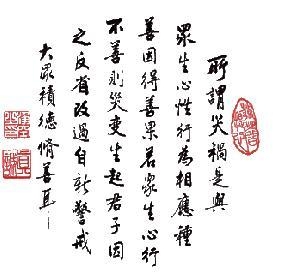 所謂災禍是與
眾生心性行為相應種
善因得善果若眾生心行
不善則災變生起君子因
之反省改過自新警戒
大眾積德脩善耳